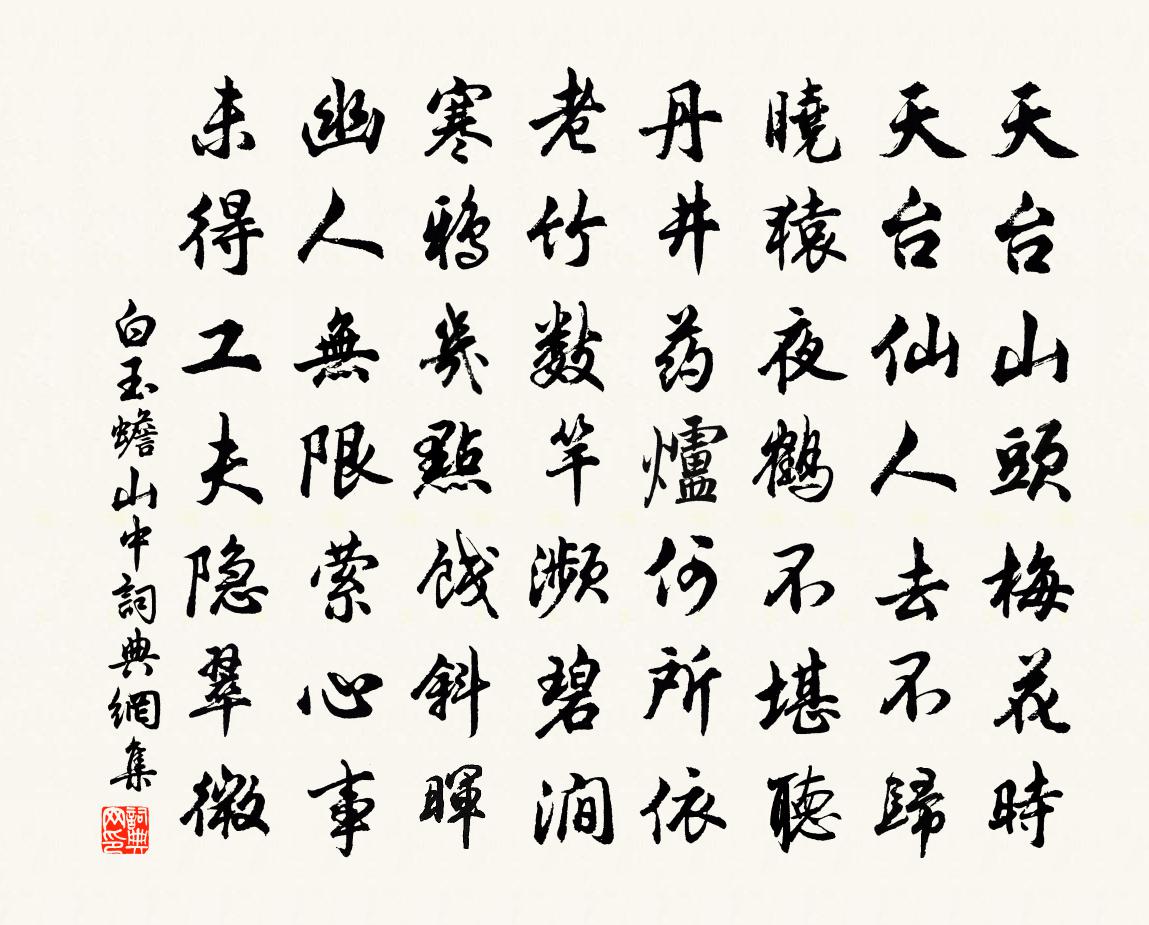 天台山頭梅花時
天台仙人去不歸
曉猿夜鶴不堪聽
丹井药爐何所依
老竹數竿瀕碧澗
寒鴉幾點餞斜暉
幽人無限縈心事
未得工夫隐翠微
白玉蟾山中詞典網集
詞典网印